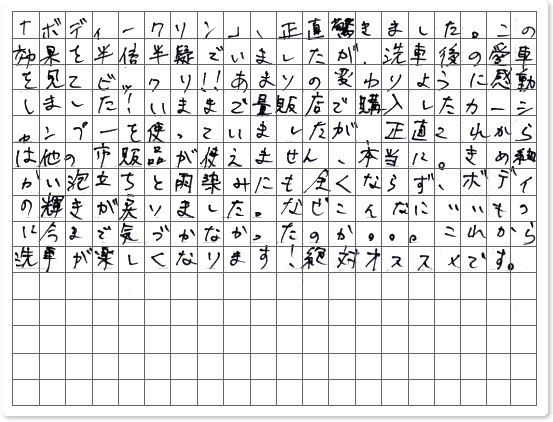 「ボディークリン」、正直驚きました。この
効果を半信半疑でいましたが、洗車後の愛車
を見てビックリ!!あまりの変わりように感動
しました!いままで量販店で購入したカーシ
ャンプーを使っていましたが、正直これから
は他の市販品が使えません、本当に。きめ細
かい泡立ちと雨染みにも全くならず、ボディ
の輝きが戻りました。なぜこんなにいいもの
に今まで気づかなかったのか。。。これから
洗車が楽しくなります!絶対オススメです。